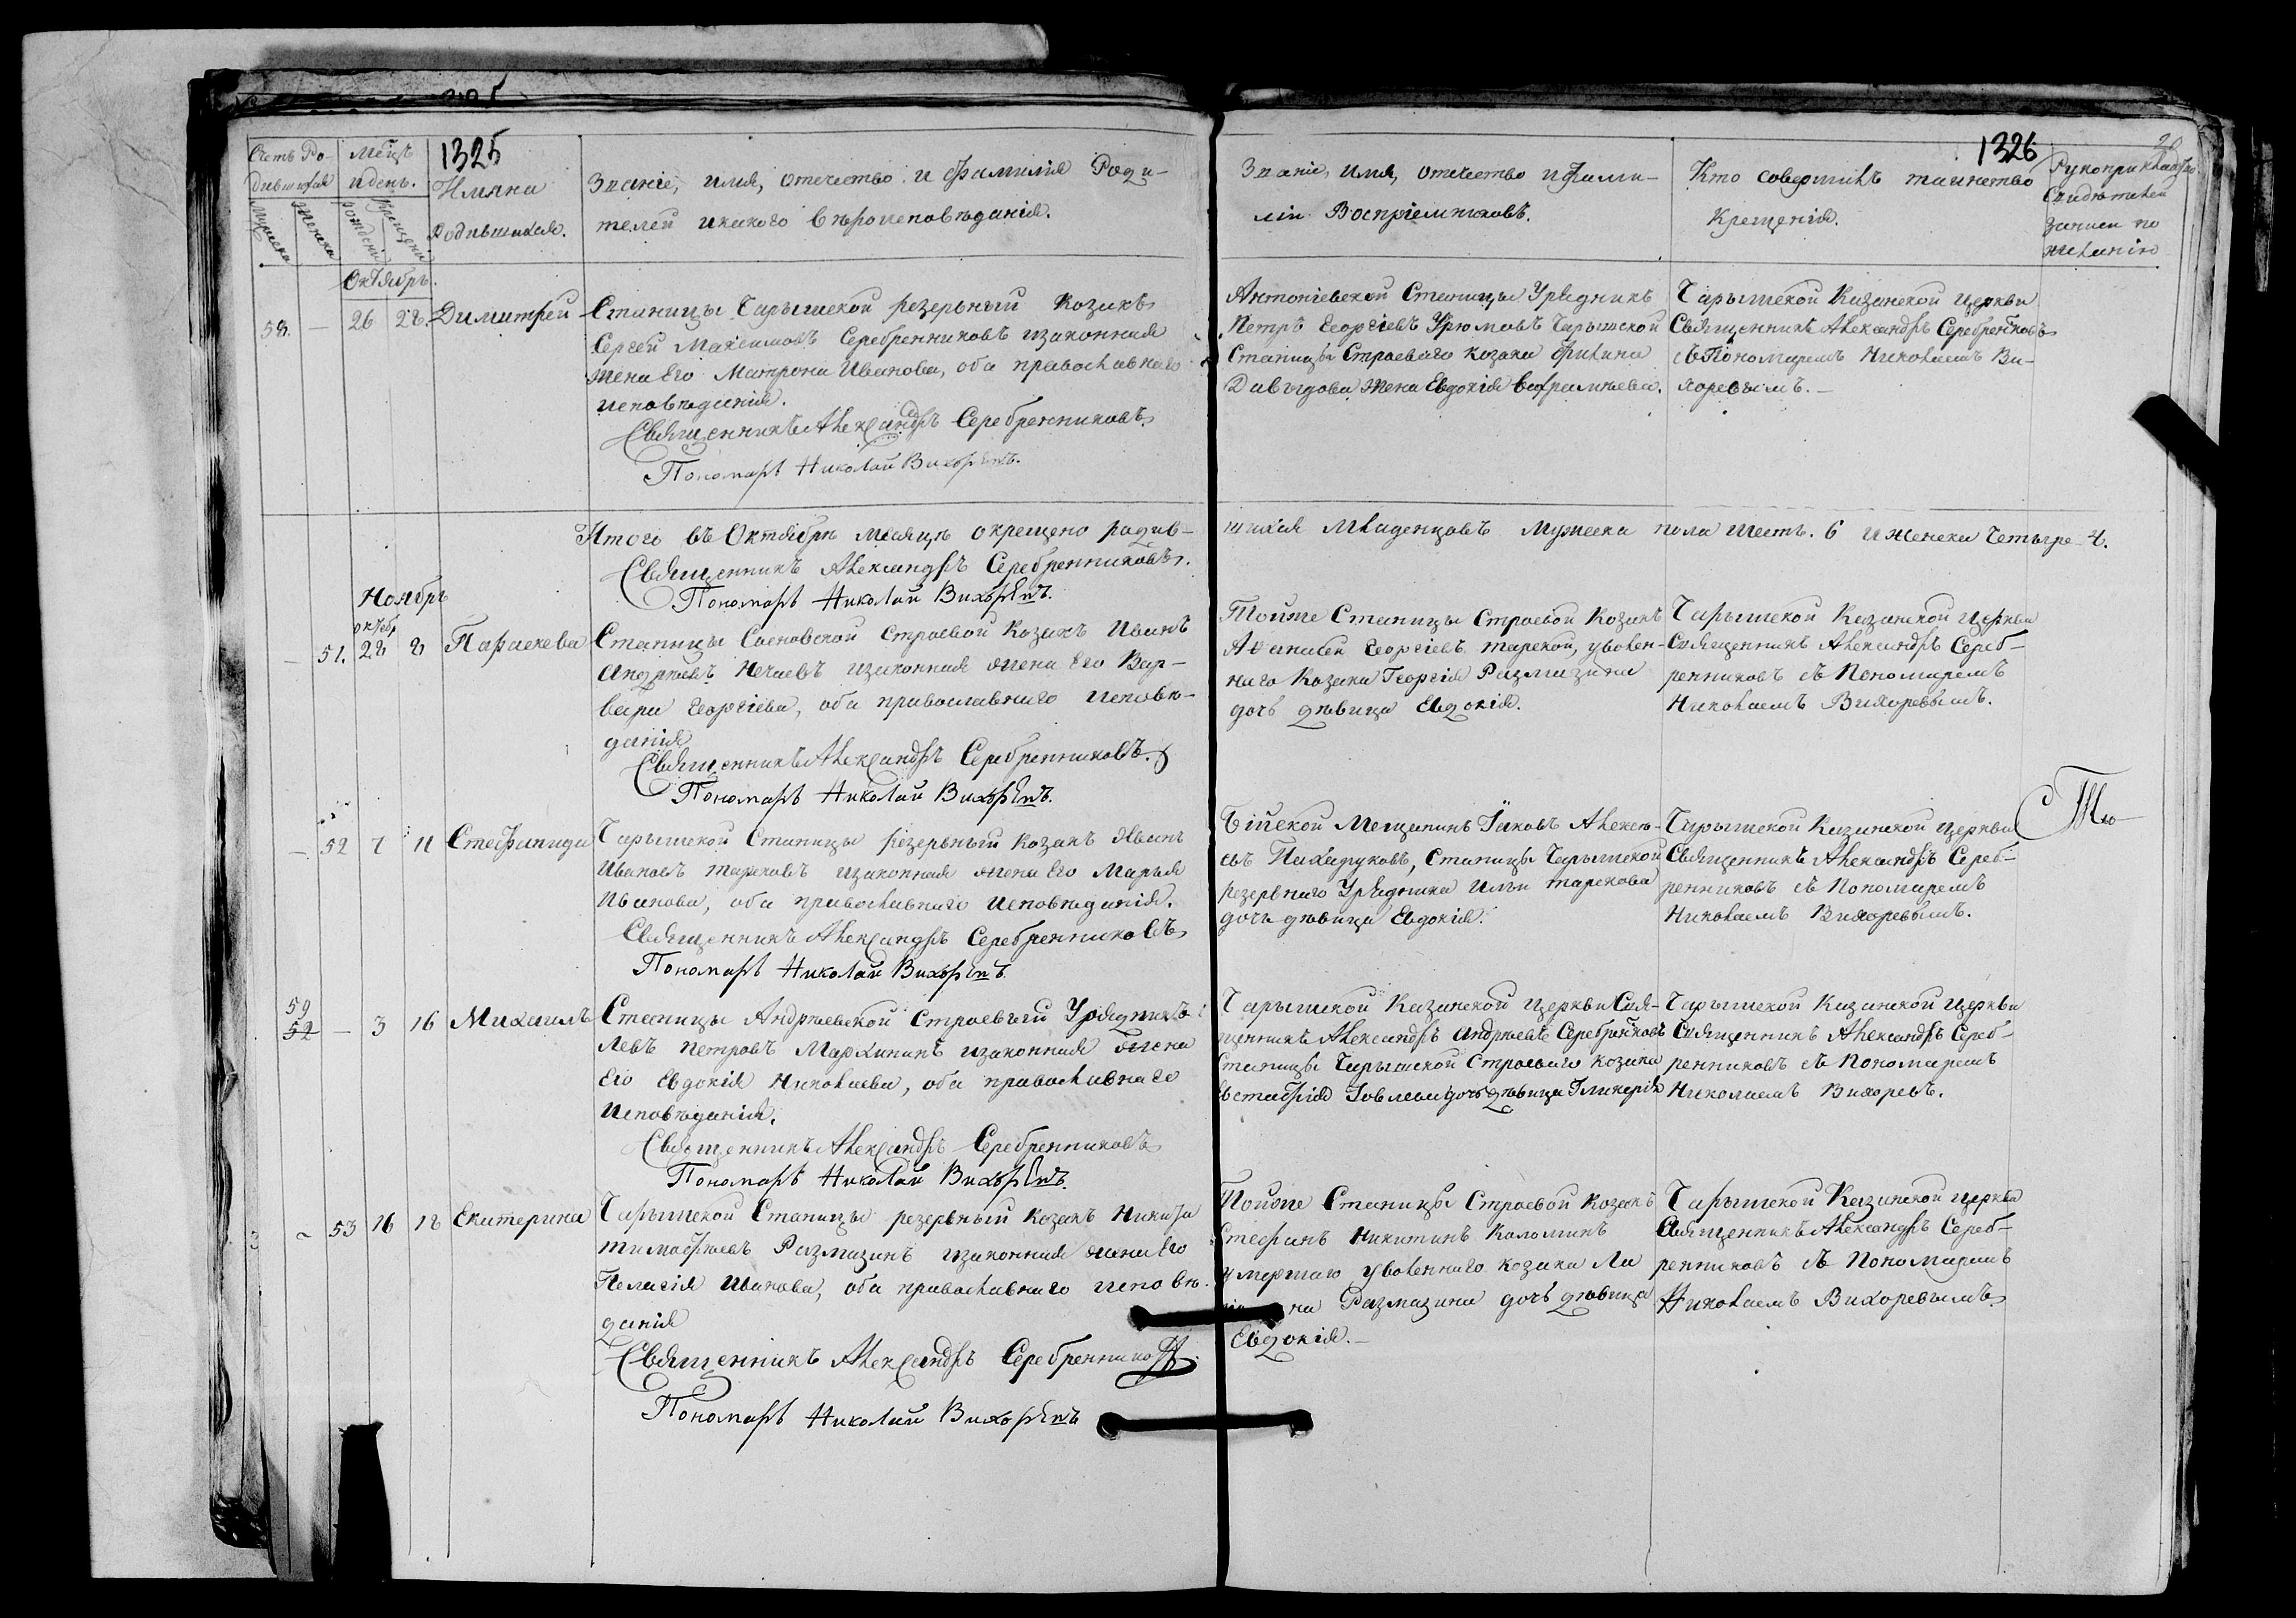 1325
Счетъ Ро-
дившихся
Мѣсцъ
и день.
Имяна
родившихся.
Званіе, имя, отечество и фамилія Роди-
телей и какого вѣроисповѣданія.
Мужеска
Женска
рожденія
Крещенія
Октябрь.
58. — 26 28. Димитрей
Станицы Чарышской резервный Козакъ
Сергей Максимовъ Серебренниковъ изаконная
жена Его Матрона Иванова, оба православнаго
исповѣданія.
Священникъ Александръ Серебренниковъ
Пономарь Николай Вихоревъ.
Итого въ Октябрѣ мѣсяцѣ окрещено родив-
Священникъ Александръ Серебренниковъ.
Пономарь Николай Вихоревъ.
Ноябрь
октяб
— 51. 28 8 Параскева
Станицы Сосновской Строевой Козакъ Иванъ
Андреевъ Нечаевъ изаконная жена Его Вар-
вара Георгіева, оба православнаго исповѣ-
данія
Священникъ Александръ Серебренниковъ.
Пономарь Николай Вихоревъ.
— 52 7 11 Стефанида
Чарышской Станицы резервный Козакъ Иванъ
Ивановъ Тарсковъ изаконная жена Его Марья
Иванова, оба православнаго исповѣданія.
Священникъ Александръ Серебренниковъ
Пономарь Николай Вихоревъ
59
52 — 3 16 Михаилъ
Станицы Андреевской Строевый Урядникъ
Левъ Петровъ Мархининъ изаконная жена
Его Евдокія Николаева, оба православнаго
Исповѣданія.
Священникъ Александръ Серебренниковъ
Пономарь Николай Вихоревъ.
— 53 16 18 Екатерина
Чарышской Станицы резервный Козакъ Никита
Тимофеевъ Размазинъ изаконная жена Его
Пелагія Иванова, оба православнаго исповѣ-
данія
Священникъ Александръ Серебренниковъ
Пономарь Николай Вихоревъ
1326
Званіе, имя, отечество и фами-
ліи Воспріемниковъ.
Кто совершилъ таинство
Крещенія.
Рукоприкладство
Свидѣтелей
записи по
желанію
Антоніевской Станицы Урядникъ
Петръ Георгіевъ Урюмовъ Чарышской
Станицы Строеваго козака Филипа
Давыдова жена Евдокія Ефрамнеева.
Чарышской Казанской Церкви
Священникъ Александръ Серебренниковъ
съ Пономаремъ Николаемъ Ви-
хоревымъ. —
шихся Младенцовъ Мужеска пола шесть. 6 и женска Четыре 4.
Тойже Станицы Строевой Козакъ
Афанасей Георгіевъ Тарской, уволен-
наго Козака Георгія Размазина
дочь дѣвица Евдокія.
Чарышской Казанской Церкви
Священникъ Александръ Сереб-
ренниковъ съ Пономаремъ
Николаемъ Вихоревымъ.
Бійской Мещанинъ Іаковъ Алексѣ-
евъ Пахаруковъ, Станицы Чарышской
резервнаго Урядника Ильи Тарскова
дочь дѣвица Евдокія.
Чарышской Казанской Церкви
Священникъ Александръ Сереб-
ренниковъ съ Пономаремъ
Николаемъ Вихоревымъ.
Чарышской Казанской Церкви Свя-
щенникъ Александръ Андреевъ Серебренниковъ
Станицы Чарышской Строеваго козака
Евстафія Іовлева дочь дѣвица Гликерія
Чарышской Казанской Церкви
Священникъ Александръ Сереб-
ренниковъ съ Пономаремъ
Николаемъ Вихоревъ.
Тойже Станицы Строевой Козакъ
Стефанъ Никитинъ Коломинъ
умершаго уволеннаго козака Ла
на Размазина дочь дѣвица
Евдокія. —
Чарышской Казанской Церкви
Священникъ Александръ Сереб-
ренниковъ съ Пономаремъ
Николаемъ Вихоревымъ.